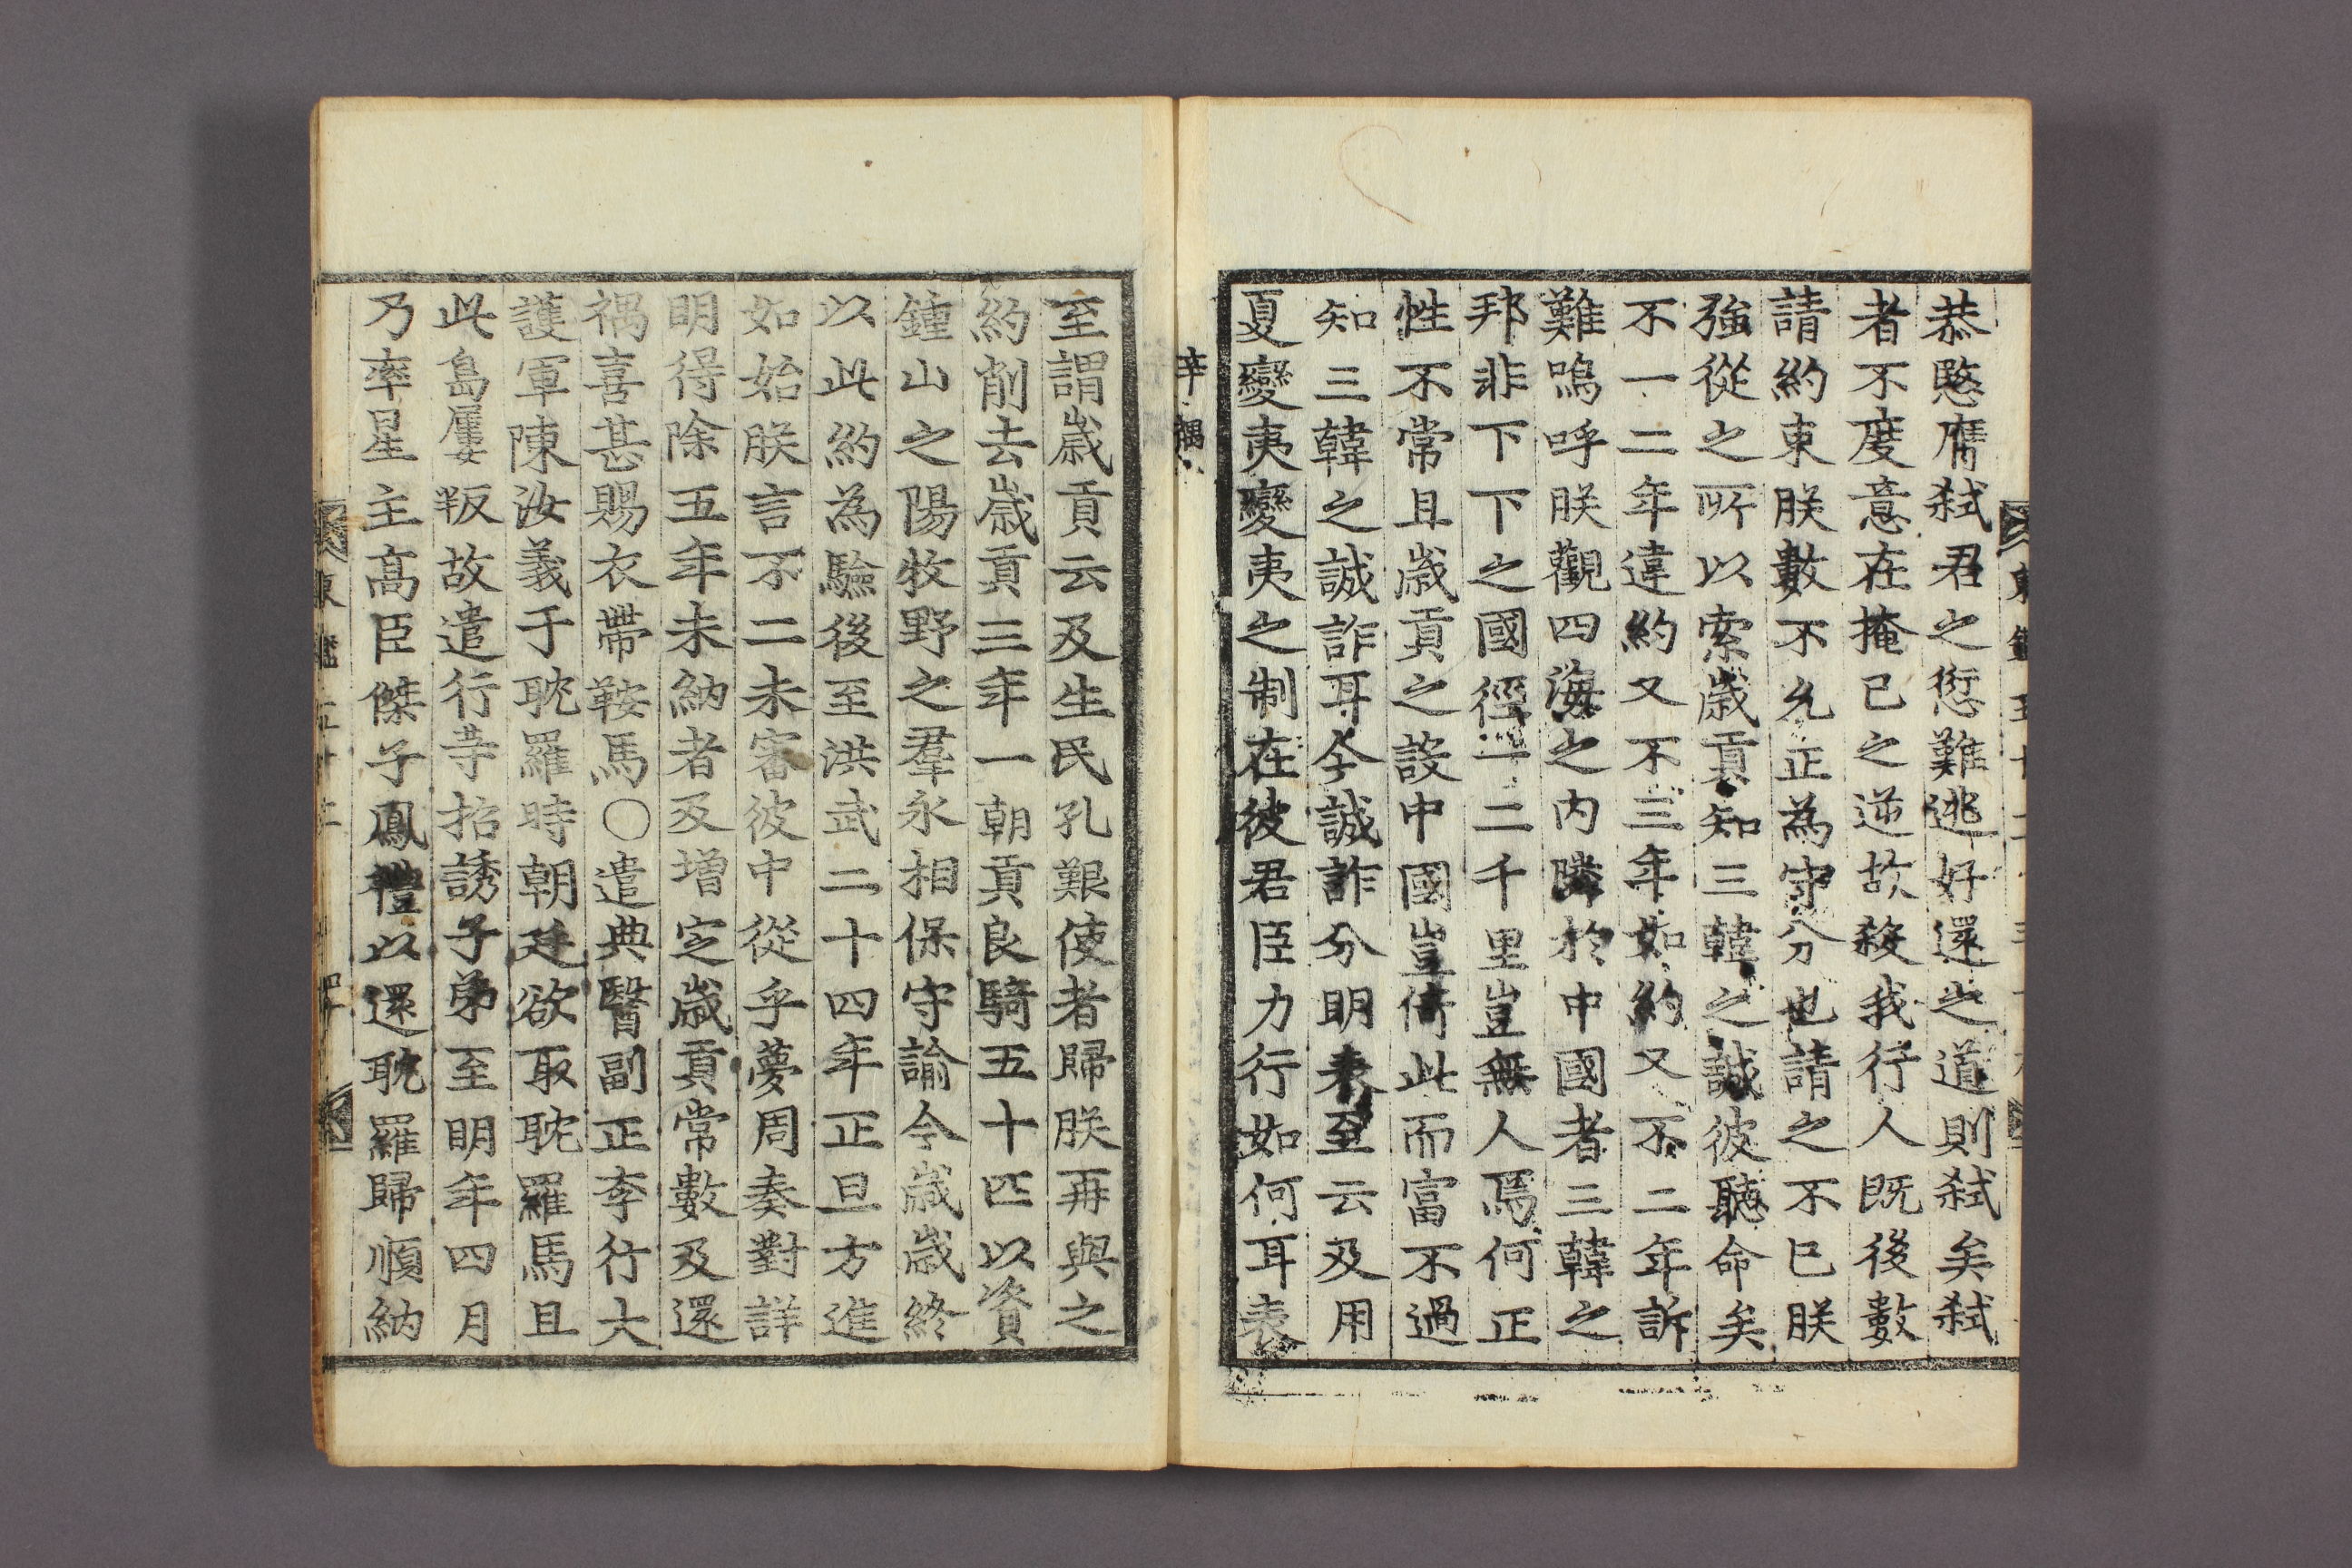 恭愍膺弑君之愆難逃好還之道則弑矣弑
者不度意在掩己之逆故殺我行人既後數
請約束朕數不允正為守分也請之不已朕
強從之所以索歲貢知三韓之誠彼聽命矣
不一二年違約又不三年如約又不二年訴
難嗚呼朕觀四海之内隣於中國者三韓之
邦非下下之國徑一二千里豈無人焉何正
性不常且歲貢之設中國豈倚此而富不過
知三韓之誠詐耳今誠詐分明表至云及用
夏變夷變夷之制在彼君臣力行如何耳表
辛禑
至謂歲貢云及生民孔艱使者歸朕再與之
約削去歲貢三年一朝貢良騎五十匹以資
鍾山之陽牧野之羣永相保守諭今歲歲終
以此約為驗後至洪武二十四年正旦方進
如始朕言不二未審彼中從乎夢周奏對詳
明得除五年未納者及增定歲貢常數及還
禑喜甚賜衣帶鞍馬○遣典醫副正李行大
護軍陳汝義于耽羅時朝廷欲取耽羅馬且
此島屢叛故遣行等招誘子弟至明年四月
乃率星主高臣傑子鳳禮以還耽羅歸順納